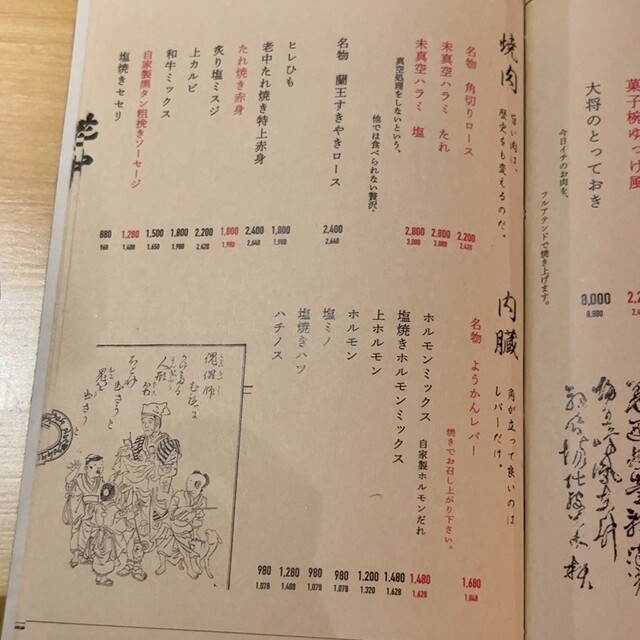 菓子椀ゆっけ風
大将のとっておき
今日イチのお肉を、
フルアテンドで焼き上げます。
8,000
8,800
焼肉
旨い肉は、
歴史をも変えるのだ。
名物 角切りロース
2,200
2,420
未真空ハラミ たれ
2,800
3,080
未真空ハラミ 塩
2,800
3,080
真空処理をしないという、
他では食べられない贅沢。
名物 蘭王すきやきロース
2,400
2,640
ヒレひも
1,800
1,980
老中たれ焼き特上赤身
2,400
2,640
たれ焼き赤身
1,800
1,980
炙り塩ミスジ
2,200
2,420
上カルビ
1,800
1,980
和牛ミックス
1,500
1,650
自家製黒タン粗挽きソーセージ
1,280
1,408
塩焼きセセリ
880
968
内臓
角が立って良いのは
レバーだけ。
名物 ようかんレバー
焼きでお召し上がり下さい。
1,680
1,848
ホルモンミックス 自家製ホルモンだれ
1,480
1,628
塩焼きホルモンミックス
1,480
1,628
上ホルモン
1,200
1,320
ホルモン
980
1,078
塩ミノ
980
1,078
塩焼きハツ
1,280
1,408
ハチノス
980
1,078